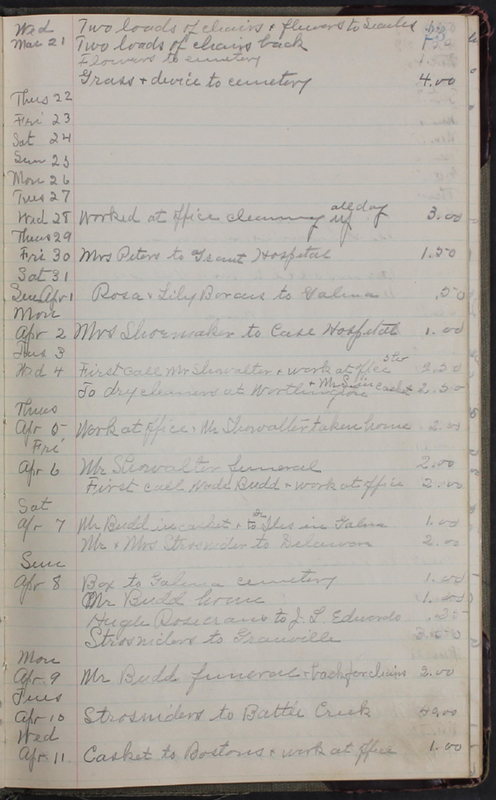 Wed Two loads of chairs + flowers to
Mar 21 Two loads of chairs back
Flowers to cemetery
Grass + device to cemetery 4.00
Thus 22
Fri 23
Sat 24
Sun 25
Mon 26
Tues 27
Wed 28 Worked at office cleaning up all day 3.00
Thus 29
Fri 30 Mrs Peters to Grant Hospital 1.50
Sat 31
Sun Apr 1 Rosa + Lily to Galena .50
Mon
Apr 2 Mrs Shoemaker to Case Hospital 1.00
Tues 3
Wed 4 First call Mr Showalter + work at office 2.50
To dry cleaners at Worthington + Mr in casket 2.50
Thus
Apr 5 Work at office, Mr Showalter taken home 2.00
Fri
Apr 6 Mr Showalter funeral 2.00
First call Wade Budd + work at office 2.00
Sat
Apr 7 Mr Budd in casket + to in Galena 1.00
Mr + Mrs Strosnider to Delaware 2.00
Sun
Apr 8 Box to Galena cemetery 1.00
Mr Budd home 1.00
Hugh Rosecrans to J. L. Edwards
Strosniders to Granville
Mon
Apr 9 Mr Budd funeral + back for chairs 2.00
Tues
Apr 10 Strosniders to Battle Creek
Wed
Apr 11 Casket to + work at office 1.00